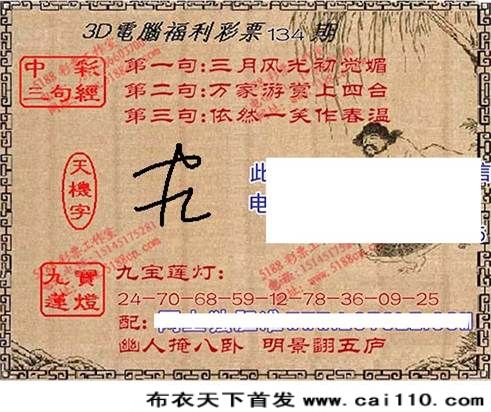 3D電腦福利彩票134期
中彩
三句經
第一句:三月风光初觉媚
第二句:万家游赏上四台
第三句:依然一笑作春温
天機字
此
信
电
九寶
蓮燈
九宝莲灯:
24-70-68-59-12-78-36-09-25
配:
幽人掩八卧 明景翻五庐
5188 彩票工作室
15145175281
www.5188cp.com
布衣天下首发 www.cai110.com